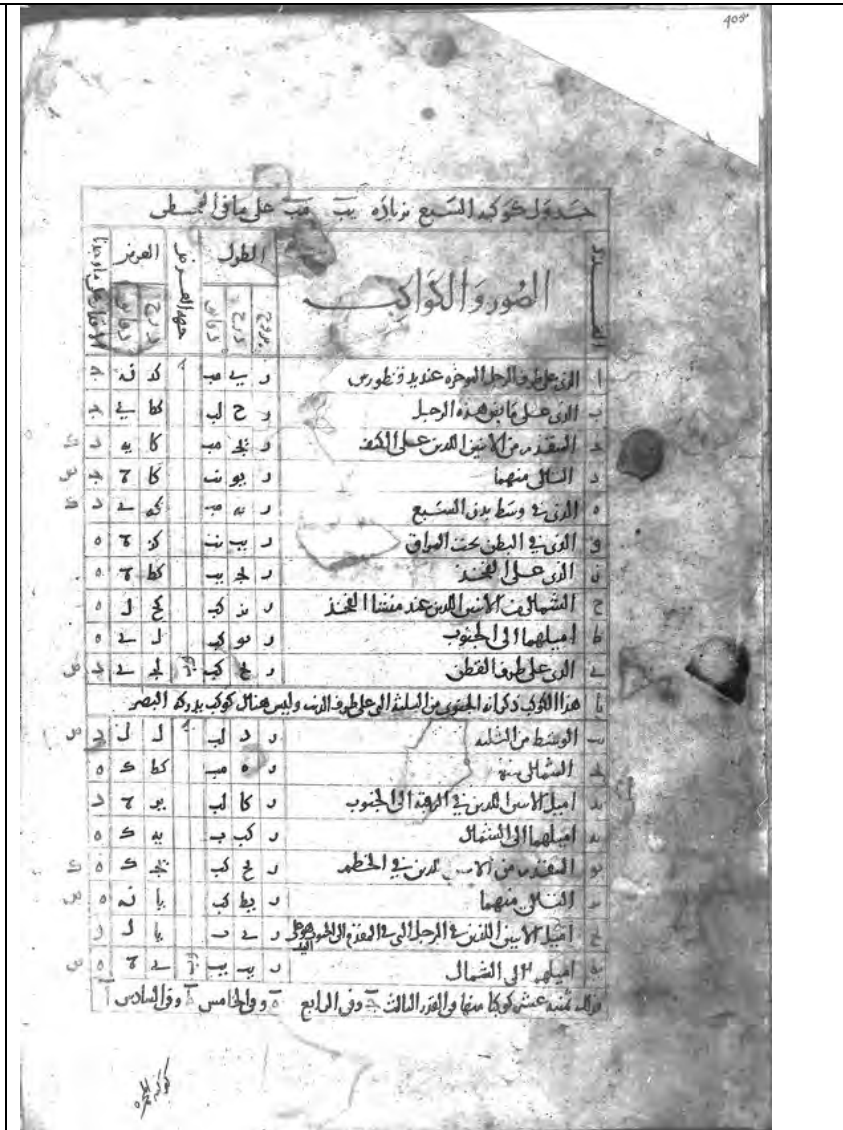 405
جدول كوكبه السبع بزياده يب مب على ما في المجسطى
العدد الصور والكواكب الطول جهه العرض العرض الاقدار على ما وجدنا
بروج درج دقائق درج دقائق
ا الذى على طرف الرجل الموخره عند يد قنطورس ز يے مب كد ن
ب الذى على مابض هذه الرجل ز ح لب كط ے
ج المتقدم من الاثنين اللذين على الكتف ز يج مب كا يه د
د التالى منهما ز يو نب كا
ه الذى فى وسط بدن السبع ز يه مب كه ے د
و الذى فى البطن تحت المراق ز يب نب كز ه
ز الذى على الفخذ ز يج يب كط ه
ح الشمالى من الاثنين اللذين عند منشا الفخذ ز يز كب كح ل ه
ط اميلهما الى الجنوب ز يو كب ل ے ه
ے الذى على طرف القطن ز كب لج ے
يا هذا الكوكب ذكر انه الجنوبى من الثلثة التى على طرف الذنب وليس هناك كوكب يدركه البصر
يب الوسط من الثلثه ز د لب ل ل د
يج الشمالى منها ز ه مب كط ك ه
يد اميل الاثنين اللذين فى الرقبه الى الجنوب ز كا لب يز د
يه اميلهما الى الشمال ز كب ب يه ك ه
يو المتقدم من الاثنين اللذين فى الخطم ز يح كب يج ك ه
يز التالى منهما ز يط كب يا ن ه
يح اميل الاثنين اللذين فى الرجل التى فى المقدم الى الجنوب ز ے ب يا ل د
يط اميلهما الى الشمال ز يب يب ے ه
فذلك ثمنيه عشر كوكبا منها فى القدر الثالث ج وفى الرابع ه وفى الخامس ط وفى السادس ا